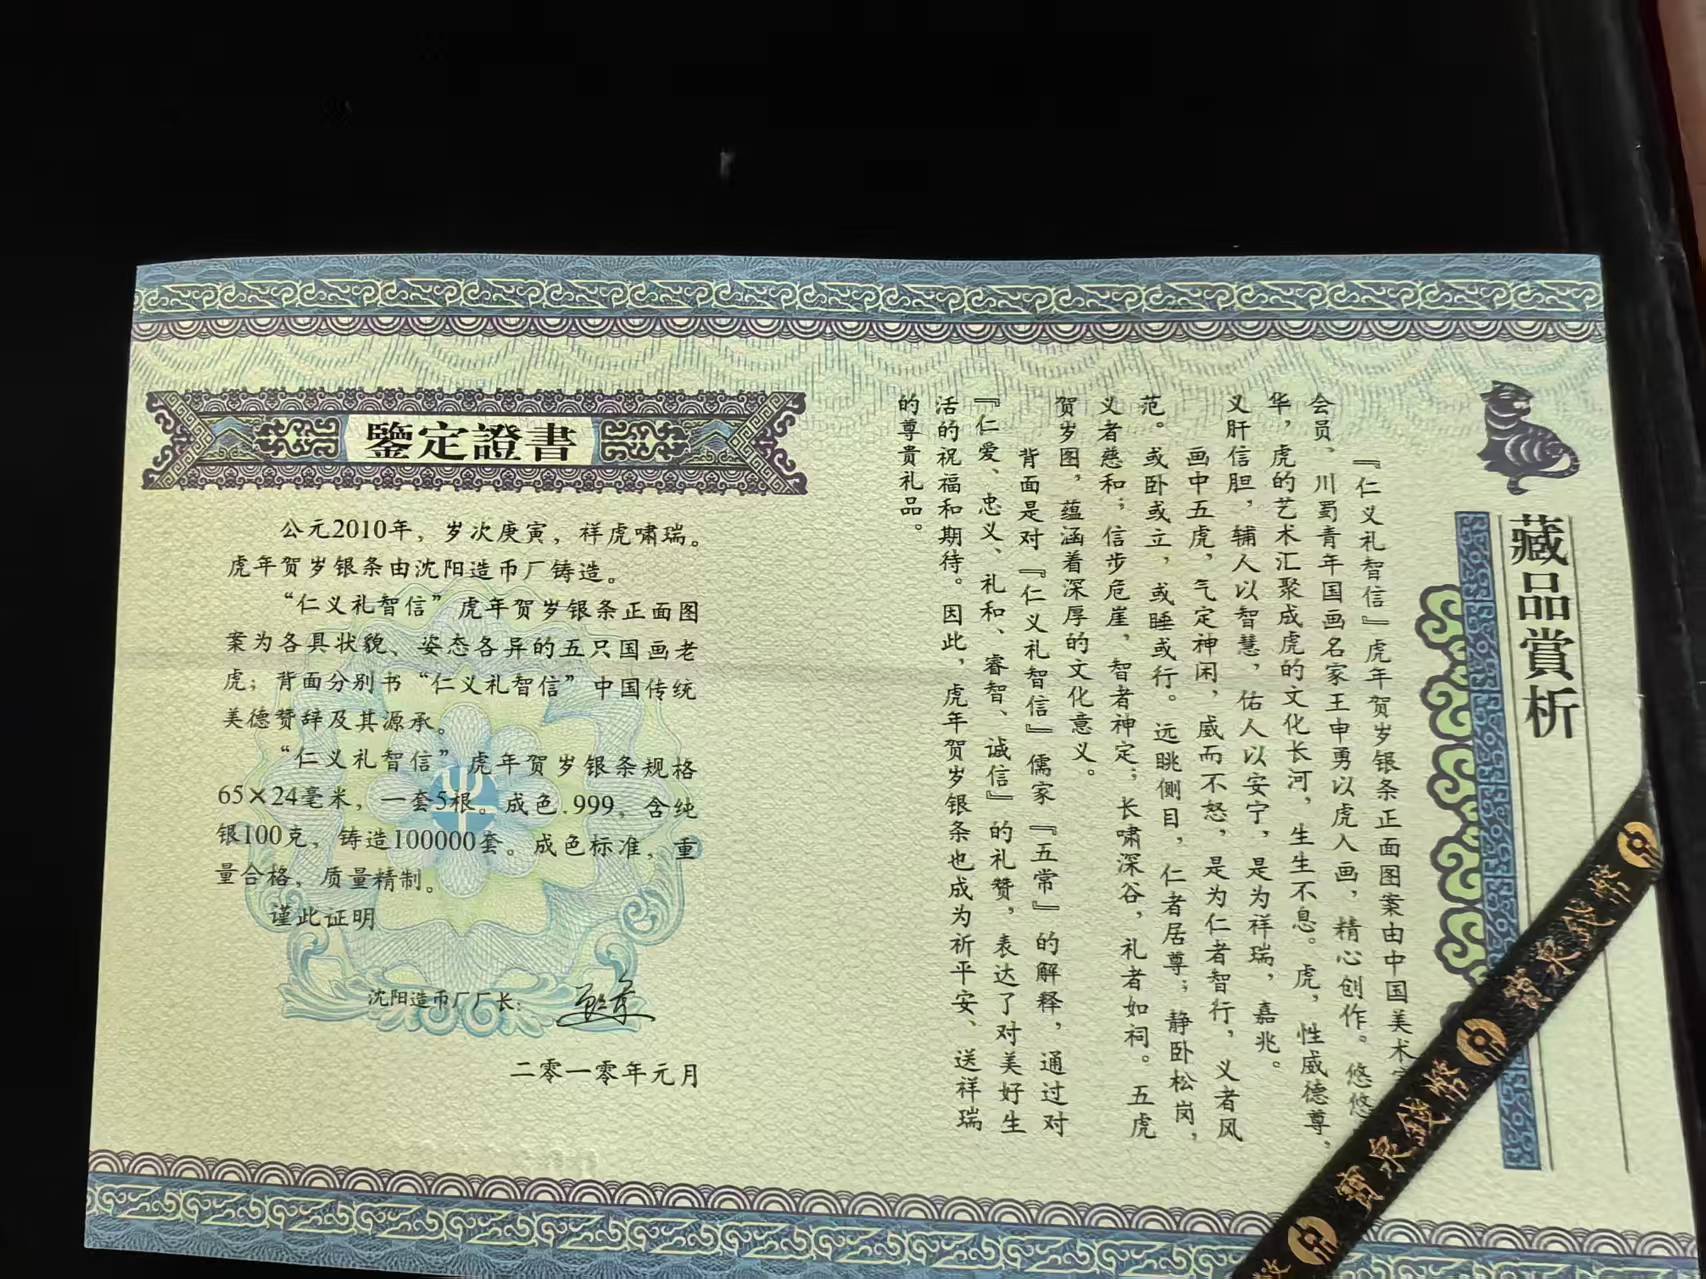 鑒定證書
公元2010年，岁次庚寅，祥虎啸瑞。
虎年贺岁银条由沈阳造币厂铸造。
“仁义礼智信”虎年贺岁银条正面图
案为各具状貌、姿态各异的五只国画老
虎；背面分别书“仁义礼智信”中国传统
美德赞辞及其源承。
“仁义礼智信”虎年贺岁银条规格
65×24毫米，一套5根。成色.999，含纯
银100克，铸造100000套。成色标准，重
量合格，质量精制。
谨此证明
沈阳造币厂厂长：
二零一零年元月
藏品賞析
『仁义礼智信』虎年贺岁银条正面图案由中国美术
会员、川蜀青年国画名家王申勇以虎入画，精心创作。悠悠
华，虎的艺术汇聚成虎的文化长河，生生不息。虎，性威德尊，
义肝信胆，辅人以智慧，佑人以安宁，是为祥瑞，嘉兆。
画中五虎，气定神闲，威而不怒，是为仁者智行，义者风
范。或卧或立，或睡或行。远眺侧目，仁者居尊；静卧松岗，
义者慈和；信步危崖，智者神定；长啸深谷，礼者如祠。五虎
贺岁图，蕴涵着深厚的文化意义。
背面是对『仁义礼智信』儒家『五常』的解释，通过对
『仁爱、忠义、礼和、睿智、诚信』的礼赞，表达了对美好生
活的祝福和期待。因此，虎年贺岁银条也成为祈平安、送祥瑞
的尊贵礼品。
寶泉錢幣
寶泉錢幣
幣